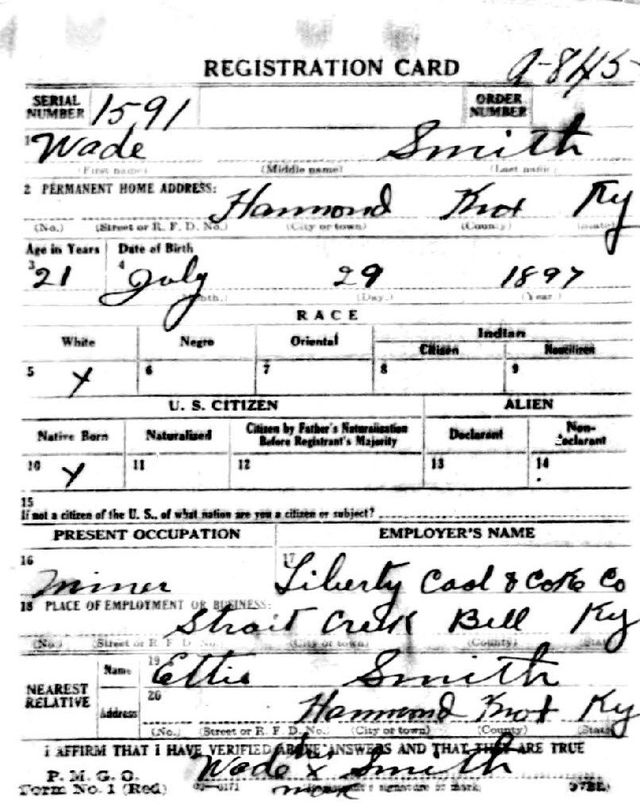 REGISTRATION CARD 9-845-
SERIAL NUMBER 1591 ORDER NUMBER
1 Wade Smith
(First name) (Middle name) (Last name)
2 PERMANENT HOME ADDRESS:
Hammond Knox Ky
(No.) (Street or R. F. D. No.) (City or town) (County) (State)
Age in Years Date of Birth
3 21 4 July 29 1897
(Month.) (Day.) (Year.)
RACE
White Negro Oriental Indian
Citizen Noncitizen
5 X 6 7 8 9
U. S. CITIZEN ALIEN
Native Born Naturalized Citizen by Father's Naturalization Before Registrant's Majority Declarant Non-declarant
10 X 11 12 13 14
15
If not a citizen of the U. S., of what nation are you a citizen or subject?
PRESENT OCCUPATION EMPLOYER'S NAME
16 Miner 17 Liberty Coal & Coke Co
18 PLACE OF EMPLOYMENT OR BUSINESS:
Strait Creek Bell Ky
(No.) (Street or R. F. D. No.) (City or town) (County) (State)
NEAREST RELATIVE Name 19 Ettie Smith
Address 20 Hammond Knox Ky
(No.) (Street or R. F. D. No.) (City or town) (County) (State)
I AFFIRM THAT I HAVE VERIFIED ABOVE ANSWERS AND THAT THEY ARE TRUE
P. M. G. O.
Form No. 1 (Red)
his
Wade X Smith
mark
(Registrant's signature or mark)